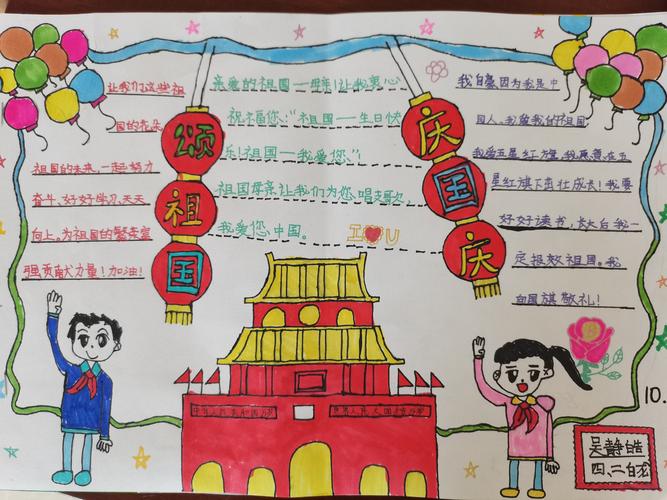 让我们这些祖
国的花朵
祖国的未来,一起努力
奋斗,好好学习,天天
向上。为祖国的繁荣富
强贡献力量!加油!
颂
祖
国
亲爱的祖国—母亲!让我衷心
祝福您:“祖国—生日快
乐!祖国—我爱您”!
祖国母亲让我们为您唱支歌,
我爱您中国。
I U
庆
国
庆
我自豪因为我是中
国人,我爱我的祖国
我爱五星红旗,我愿意在五
星红旗下茁壮成长!我要
好好读书,长大后我一
定报效祖国。我
向国旗敬礼!
中华人民共和国万岁
世界人民大团结万岁
10.
吴静皓
四、二